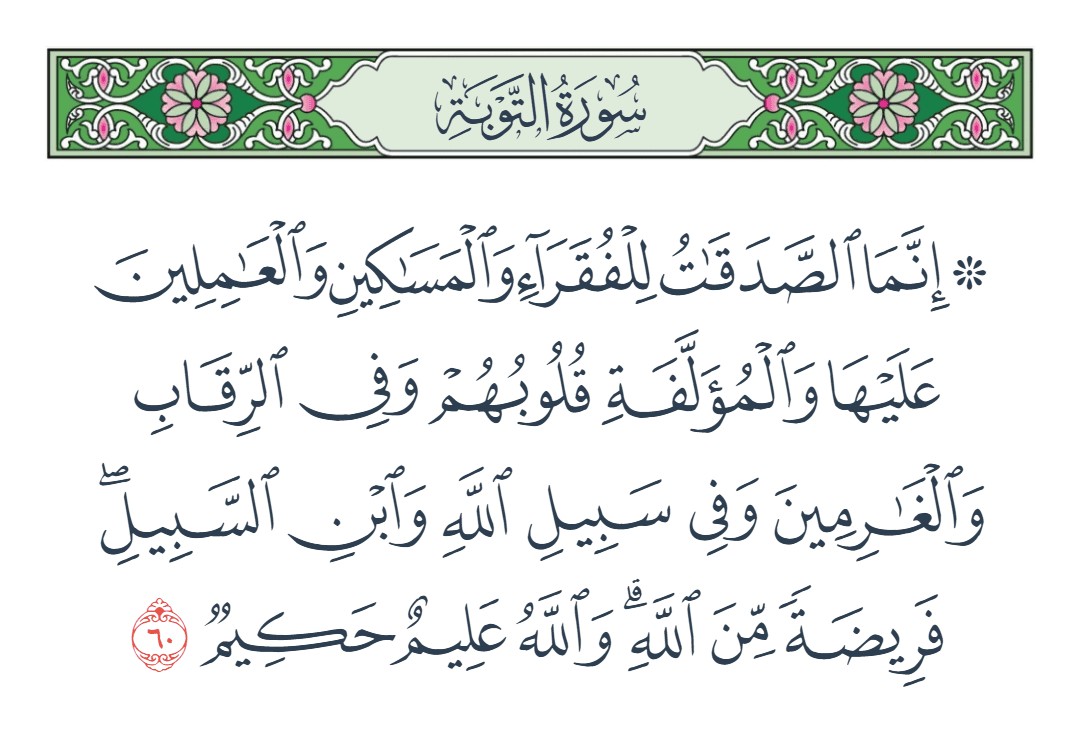 سُورَةُ التَّوۡبَةِ
۞ إِنَّمَا ٱلصَّدَقَٰتُ لِلۡفُقَرَآءِ وَٱلۡمَسَٰكِينِ وَٱلۡعَٰمِلِينَ
عَلَيۡهَا وَٱلۡمُؤَلَّفَةِ قُلُوبُهُمۡ وَفِي ٱلرِّقَابِ
وَٱلۡغَٰرِمِينَ وَفِي سَبِيلِ ٱللَّهِ وَٱبۡنِ ٱلسَّبِيلِۖ
فَرِيضَةٗ مِّنَ ٱللَّهِۗ وَٱللَّهُ عَلِيمٌ حَكِيمٞ ٦٠